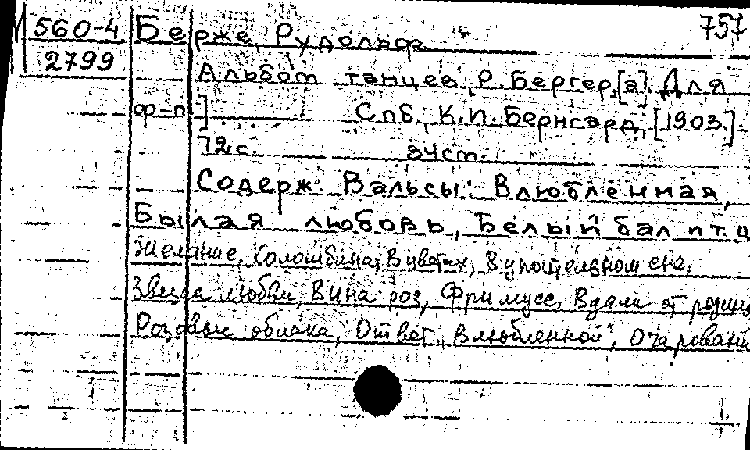 560-4 Берже, Рудольф 757
2799
Альбом танцев Р. Бергер[а]. Для
ф-п] Спб, К.П. Бернгард, [1903.]
72с.
Содерж: Вальсы: Влюблённая,
Былая любовь, Белый бал и т.ц
Желание, Коломбина, В цветах, В упоительном сне,
Звезда любви, Вина роз, Фримусс, Вдали от родины
Розовые облака, Ответ "Влюбленной", Очаровани